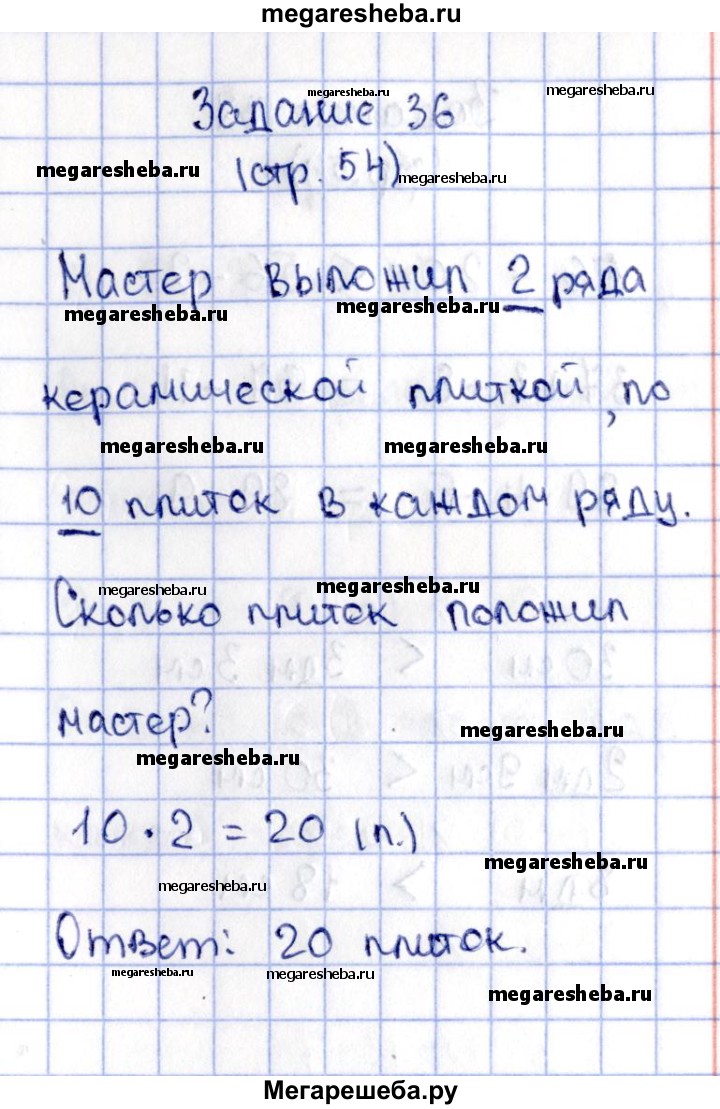 megaresheba.ru
megaresheba.ru
megaresheba.ru
Задание 36
megaresheba.ru
(стр. 54)
megaresheba.ru
Мастер выложил 2 ряда
megaresheba.ru
megaresheba.ru
керамической плиткой, по
megaresheba.ru
megaresheba.ru
10 плиток в каждом ряду.
megaresheba.ru
megaresheba.ru
Сколько плиток положил
мастер?
megaresheba.ru
megaresheba.ru
10 · 2 = 20 (п.)
megaresheba.ru
megaresheba.ru
Ответ: 20 плиток.
megaresheba.ru
megaresheba.ru
megaresheba.ru
Мегарешеба.ру